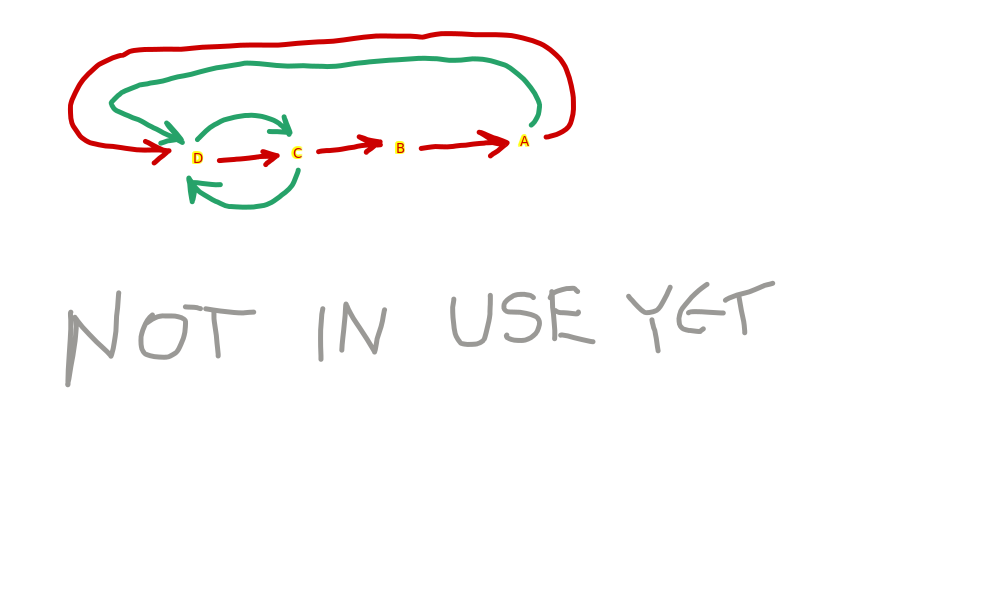 D C B A
NOT IN USE YET